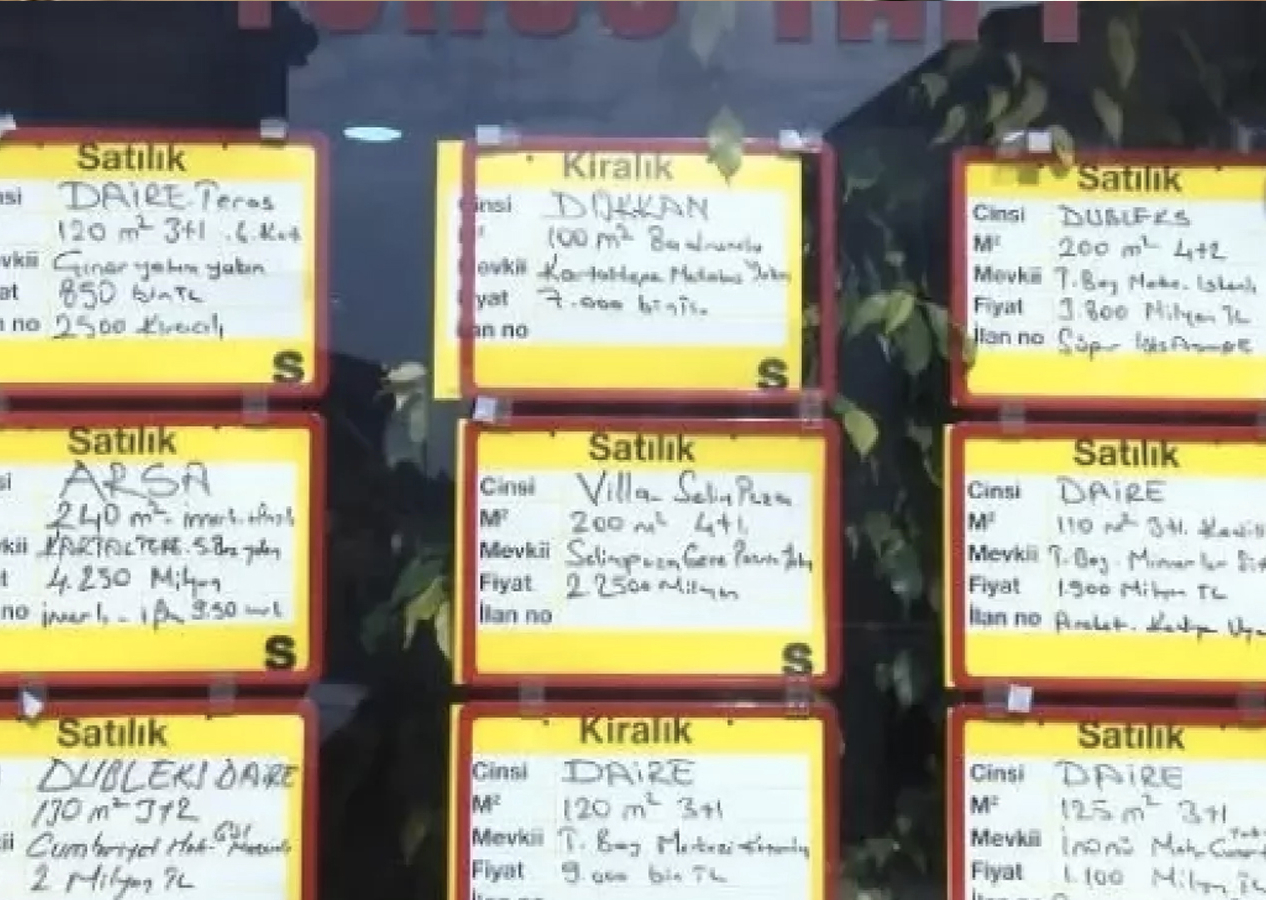 Satılık
DAİRE Teras
120 m² 3+1 .6.Kat
yakın yakın
at 850 bin TL
no 2500 Kiracılı
S
Kiralık
Cinsi DÜKKAN
100 m² Bodrumlu
Mevkii Kartaltepe
Fiyat 7.000 bin TL
İlan no
S
Satılık
Cinsi DUBLEKS
M² 200 m² 4+2
Mevkii T.Bey Mah.
Fiyat 3.800 Milyon TL
İlan no Süper
Satılık
ARSA
240 m² imarlı
vkii KARTALTEPE.
4.250 Milyon
no imarlı
S
Satılık
Cinsi Villa Selimpaşa
M² 200 m² 4+1
Mevkii Selimpaşa
Fiyat 2.2500 Milyon
İlan no
S
Satılık
Cinsi DAİRE
M² 110 m² 3+1.
Mevkii T.Bey. Mimar
Fiyat 1.900 Milyon TL
İlan no
Satılık
DUBLEKS DAİRE
3+2
Cumhuriyet Mah.
2 Milyon TL
Kiralık
Cinsi DAİRE
M² 120 m² 3+1
Mevkii T. Bey
Fiyat 9.000 bin TL
Satılık
Cinsi DAİRE
M² 125 m² 3+1
Mevkii İnönü Mah.
Fiyat 1.100 Milyon TL